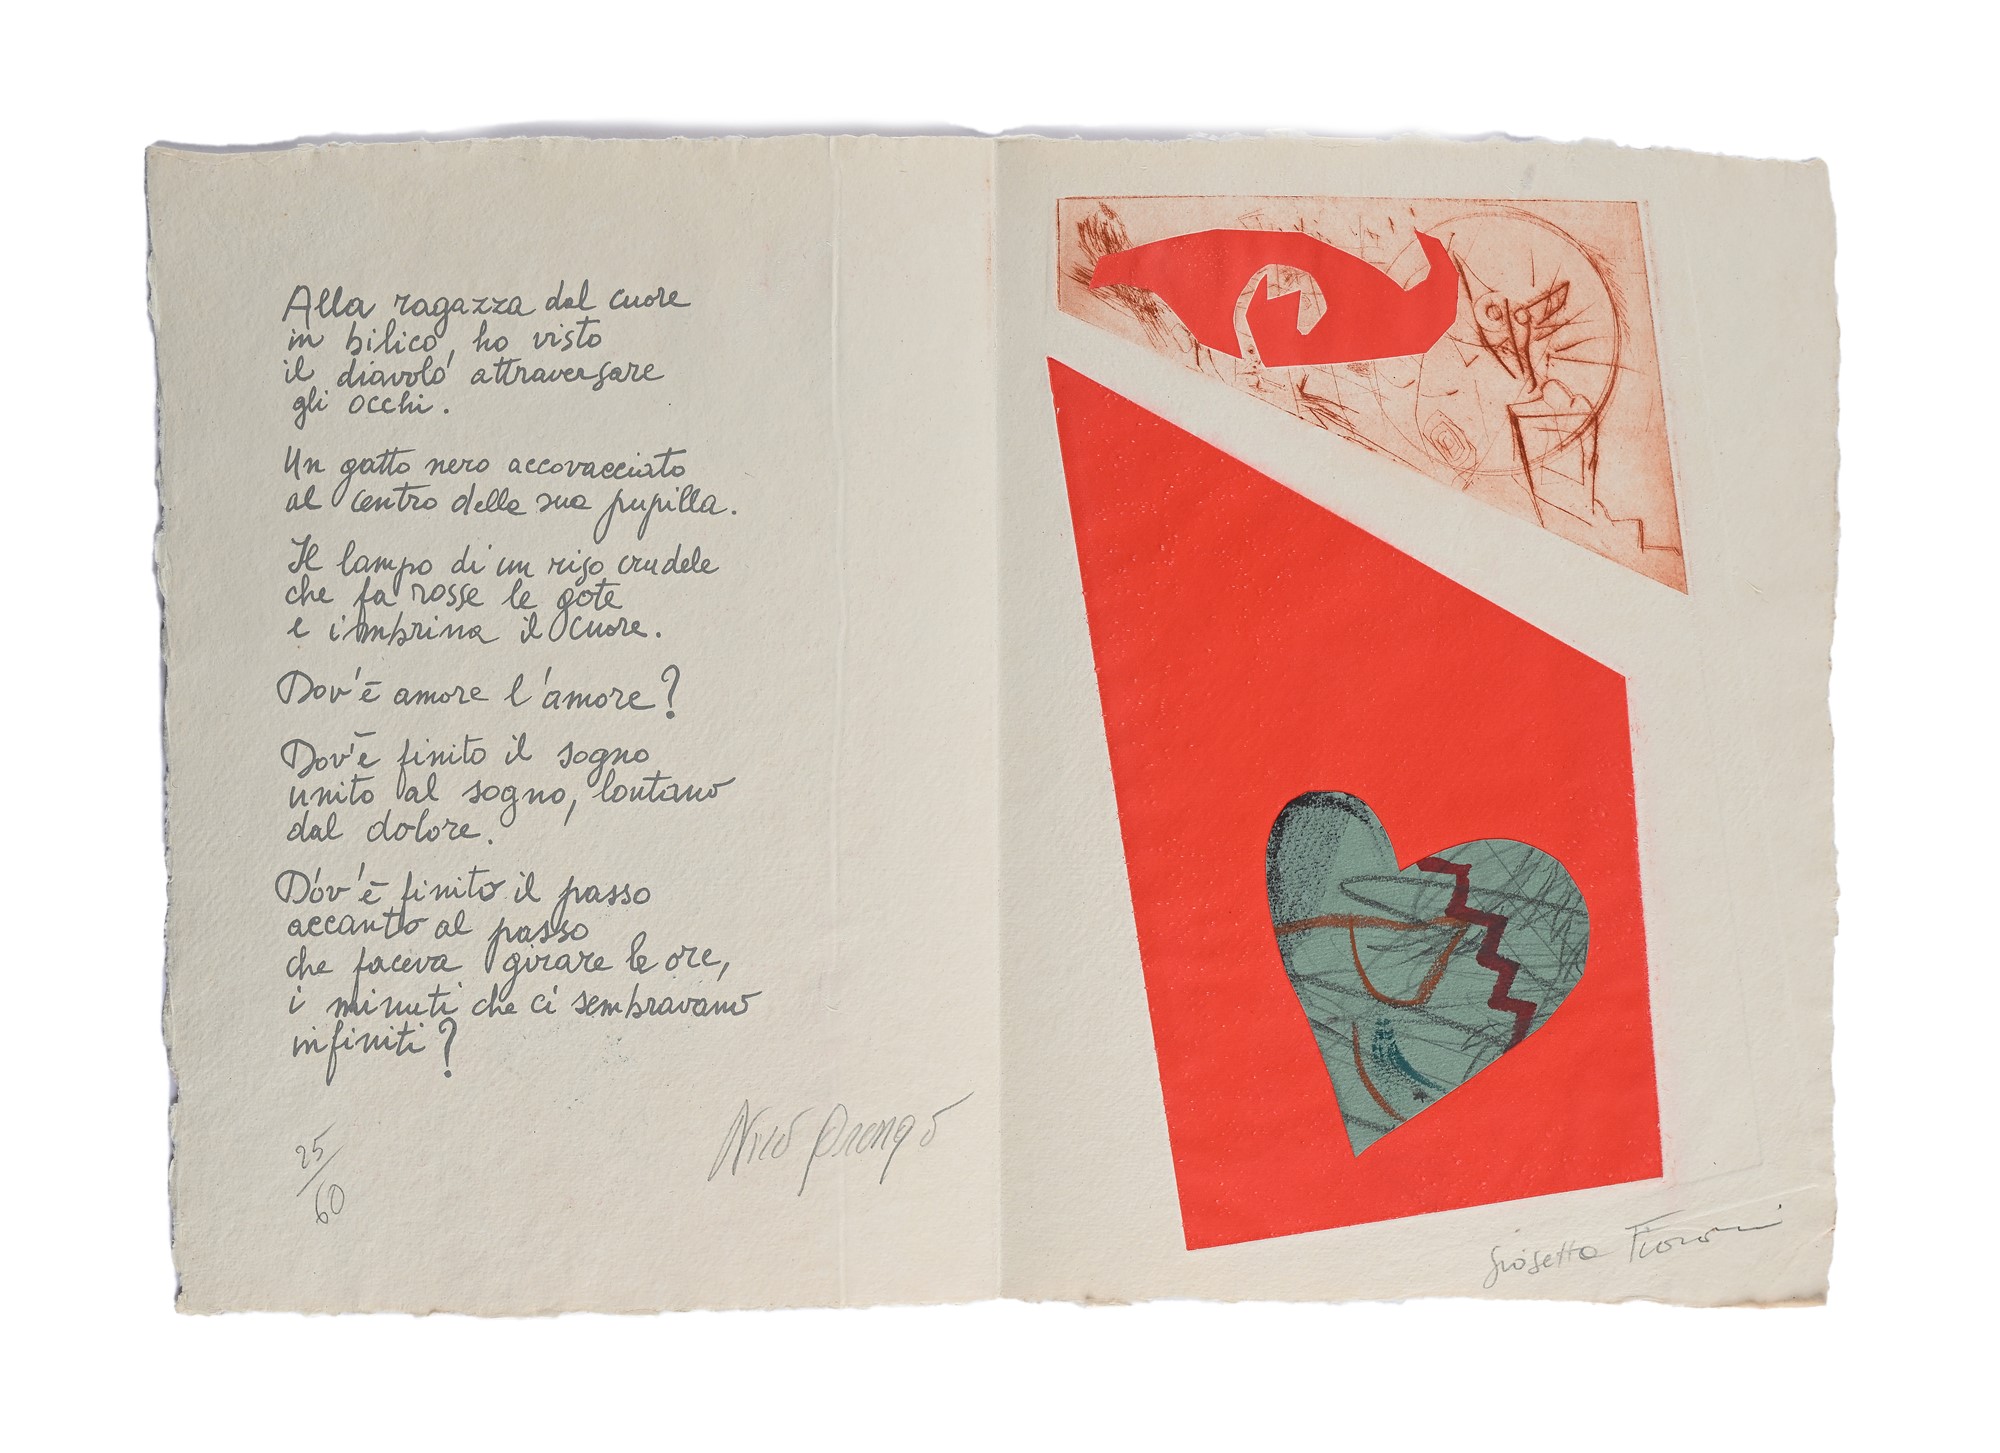 Alla ragazza dal cuore
in bilico, ho visto
il diavolo attraversare
gli occhi.
Un gatto nero accovacciato
al centro della sua pupilla.
Il lampo di un riso crudele
che fa rosse le gote
e imbrina il cuore.
Dov'è amore l'amore?
Dov'è finito il sogno
unito al sogno, lontano
dal dolore.
Dov'è finito il passo
accanto al passo
che faceva girare le ore,
i minuti che ci sembravano
infiniti?
25/60
Nico Orengo
Giosetta Fioroni